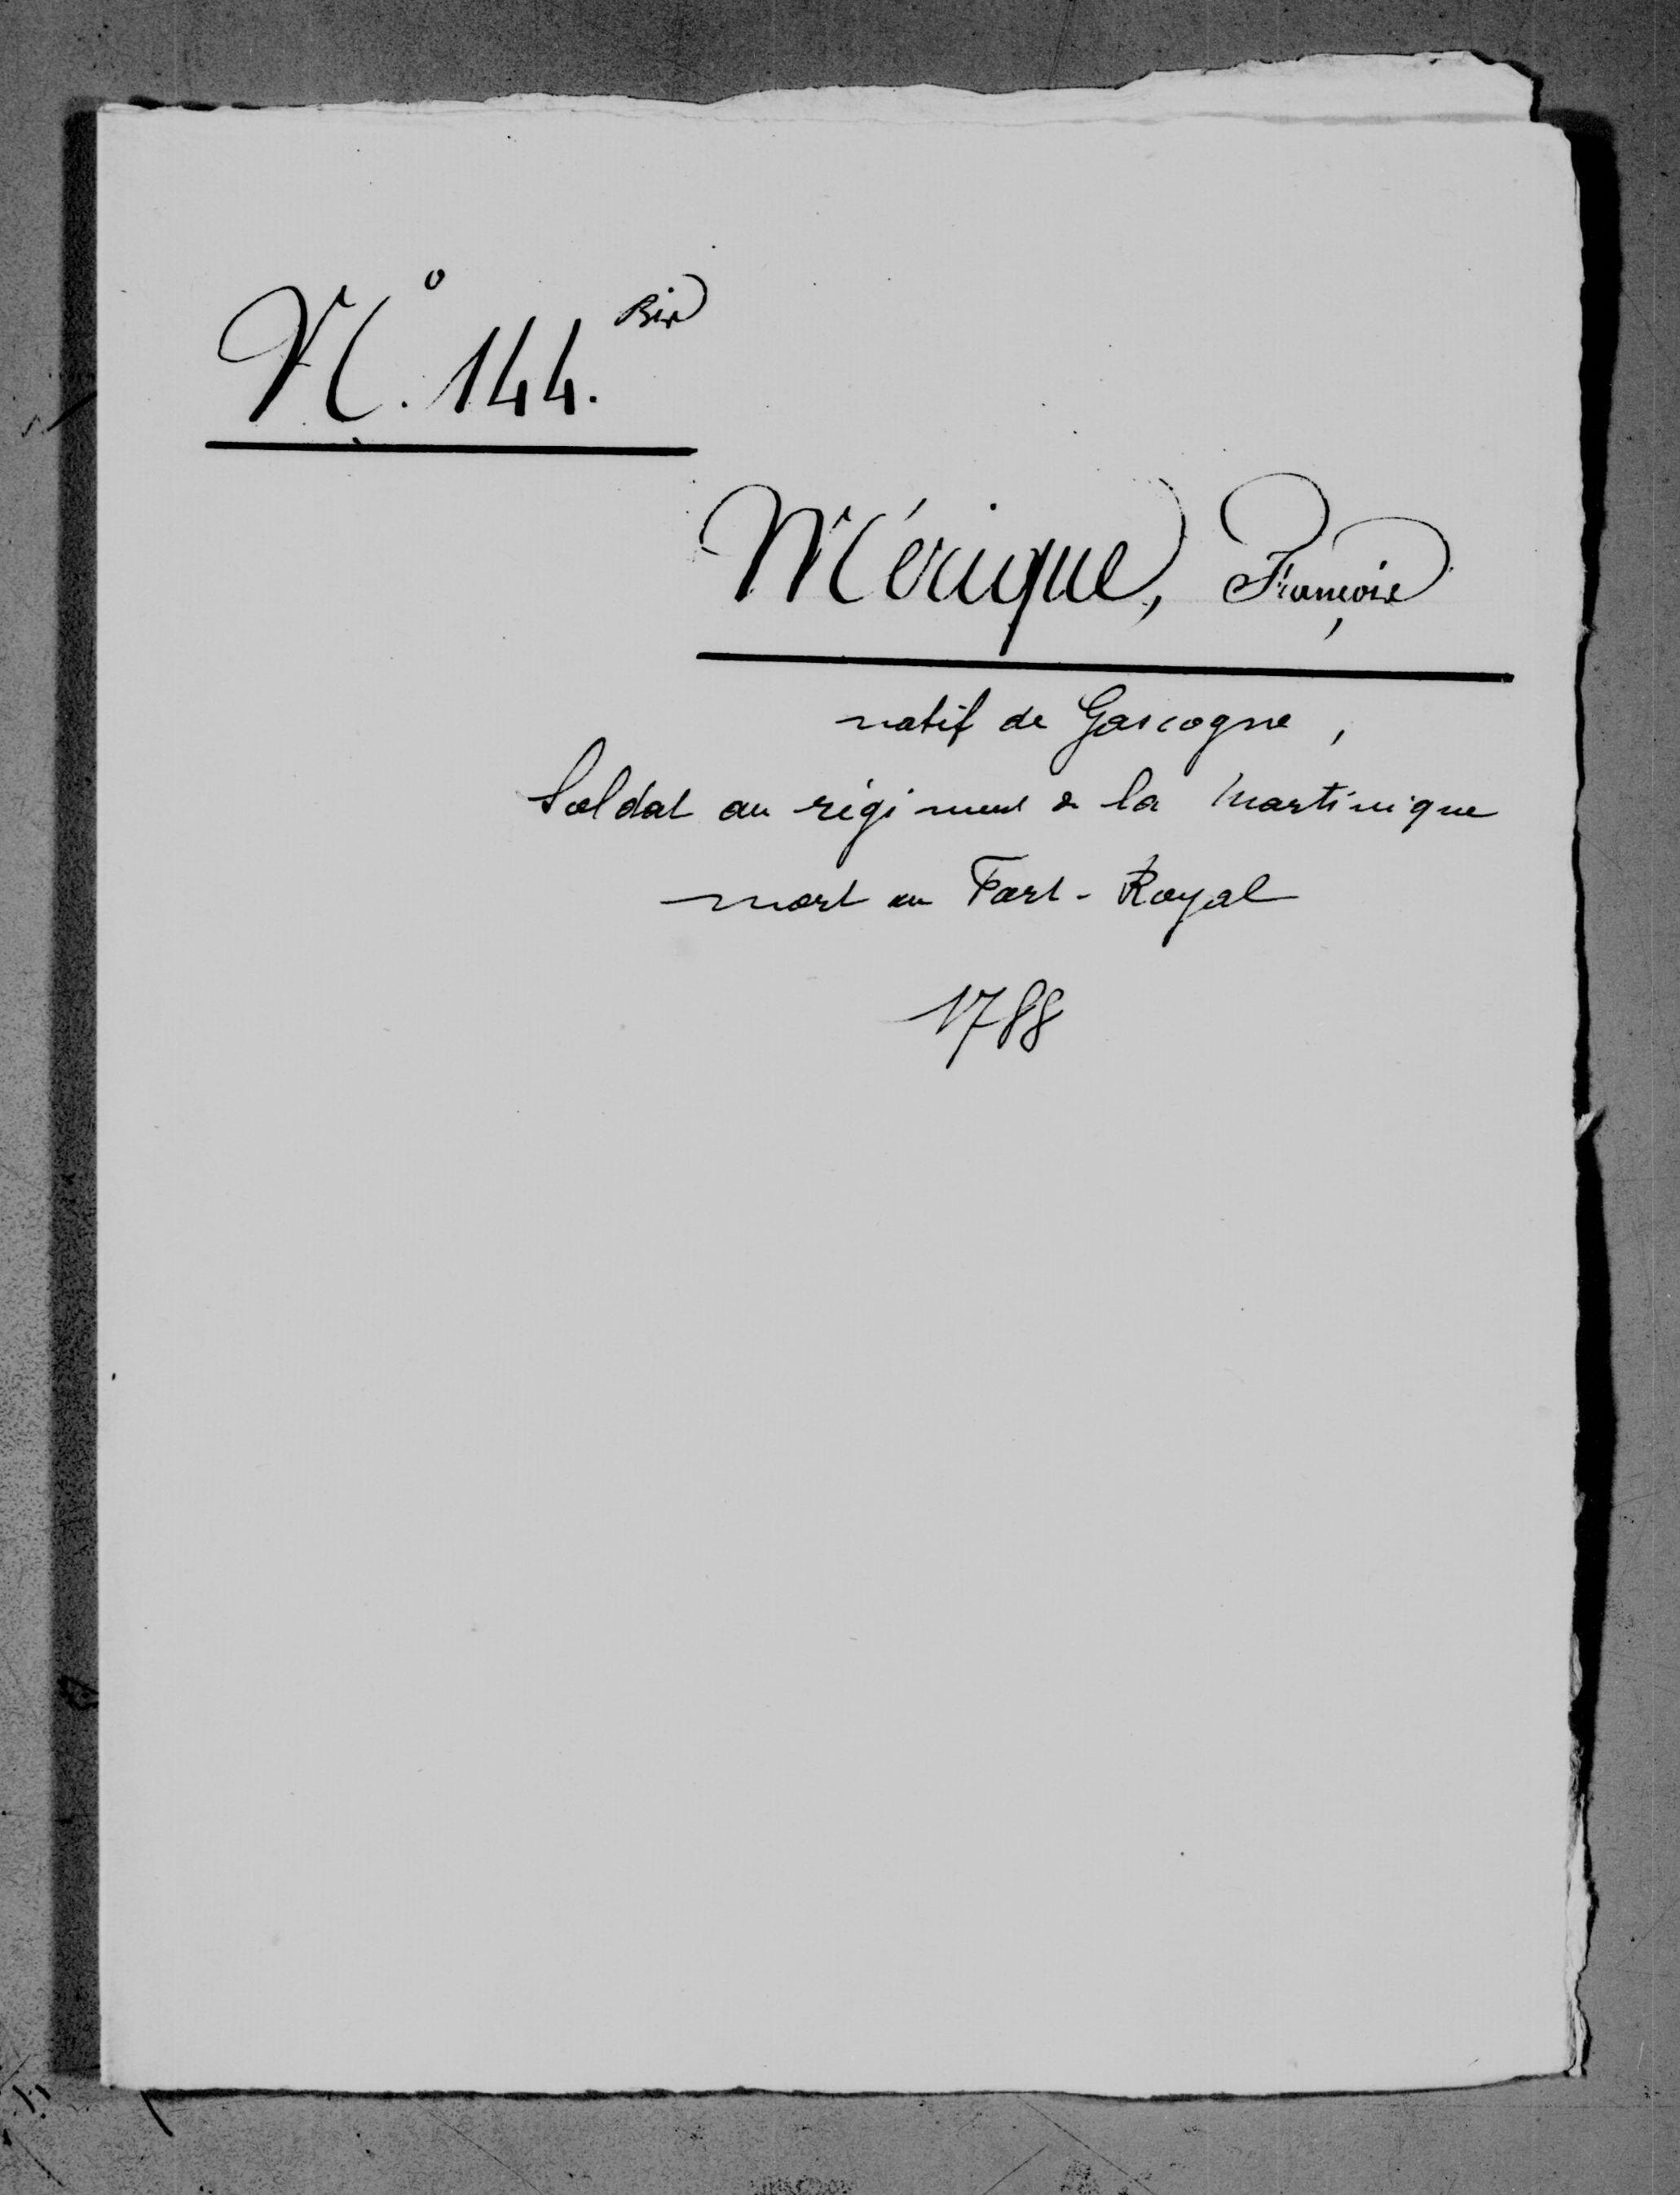 N.° 144. Bis
Mérique, François
natif de Gascogne,
Soldat au régiment de la Martinique
mort au Fort-Royal
1788